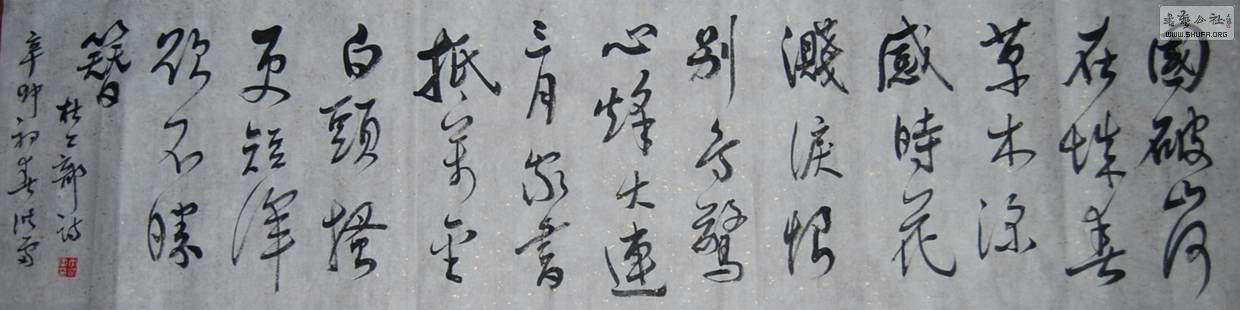 國破山河
在城春
草木深
感時花
濺淚恨
別鳥驚
心烽火連
三月家書
抵萬金
白頭搔
更短渾
欲不勝
簪
杜工部詩
辛卯初春
書藝公社
WWW.SHUFA.ORG